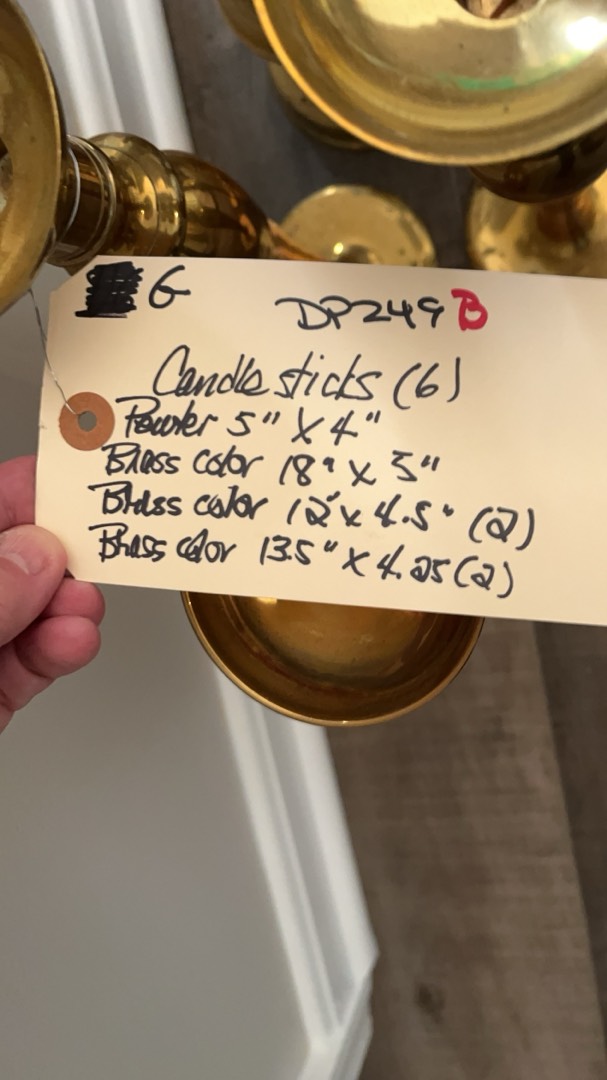 G DP249 B
Candle sticks (6)
Pewter 5" X 4"
Brass color 18" x 5"
Brass color 12" x 4.5" (2)
Brass color 13.5" x 4.25 (2)